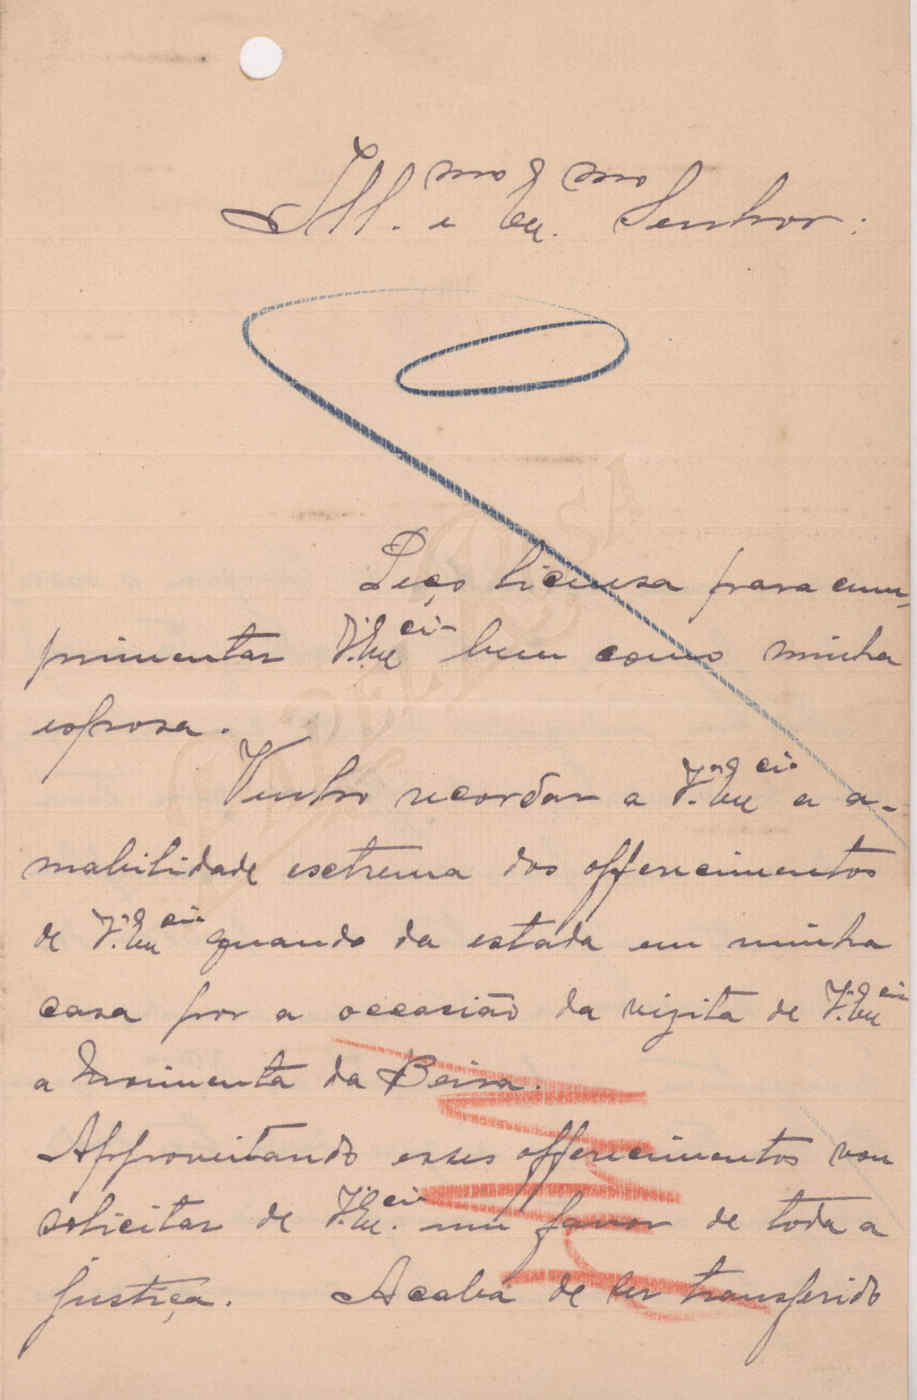 Ill.mo e Ex.mo Senhor:
Peço licensa para cum-
primentar V. Ex.cia bem como minha
esposa.
Venho recordar a V. Ex.cia a a-
mabilidade esctrema dos offerecimentos
de V. Ex.cia quando da estada em minha
casa por a occasião da vizita de V. Ex.cia
a Moimenta da Beira.
Approveitando esses offerecimentos vou
solicitar de V. Ex.cia um favor de toda a
justiça. Acaba de ser transferido